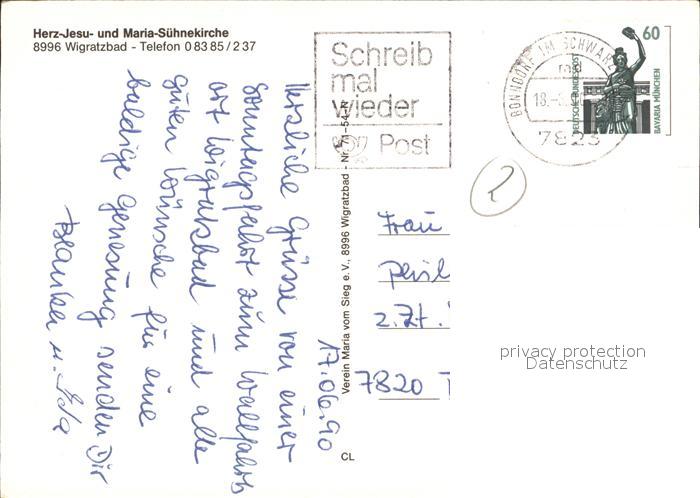 Herz-Jesu- und Maria-Sühnekirche
8996 Wigratzbad - Telefon 0 83 85 / 2 37
17.06.90
Herzliche Grüsse von einer
Sonntagsfahrt zum Wallfahrts
ort Wigratzbad und alle
guten Wünsche für eine
baldige Genesung senden Dir
Blanka u. Ida
Verein Maria vom Sieg e.V., 8996 Wigratzbad - Nr. 74-54-N
CL
Schreib
mal
wieder
Post
BONNDORF IM SCHWARZ
18.
7823
60
DEUTSCHE BUNDESPOST
BAVARIA MÜNCHEN
2
Frau
z.Zt.
7820
privacy protection
Datenschutz